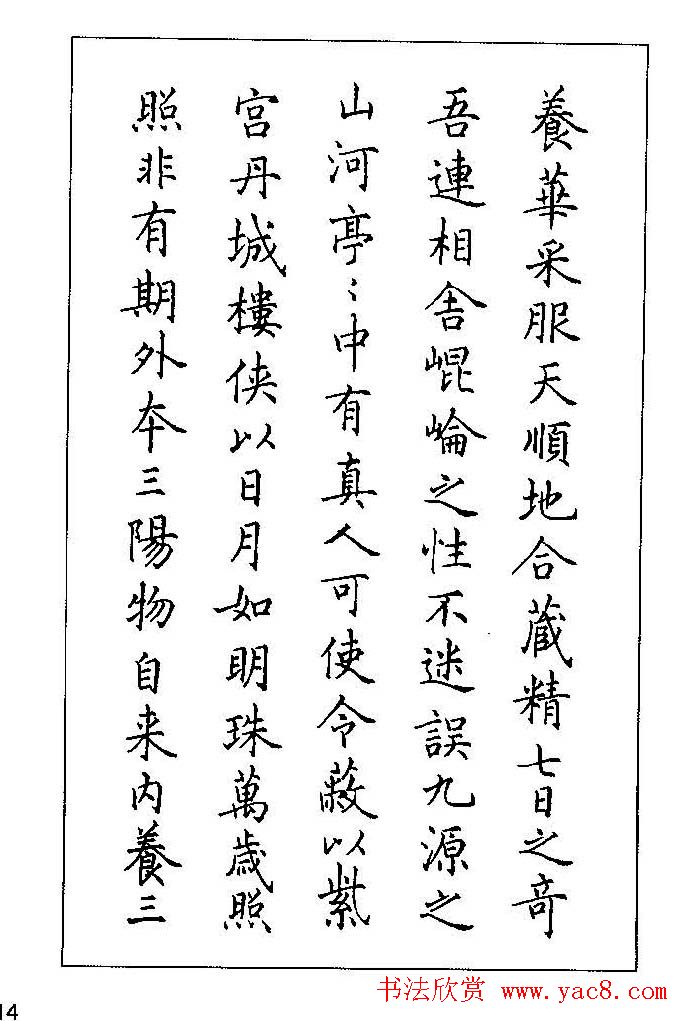 養華采服天順地合藏精七日之奇
吾連相舍崐崘之性不迷誤九源之
山河亭〻中有真人可使令蔽以紫
宫丹城樓侠以日月如明珠萬歲照
照非有期外夲三陽物自来内養三
14
书法欣赏 www.yac8.com